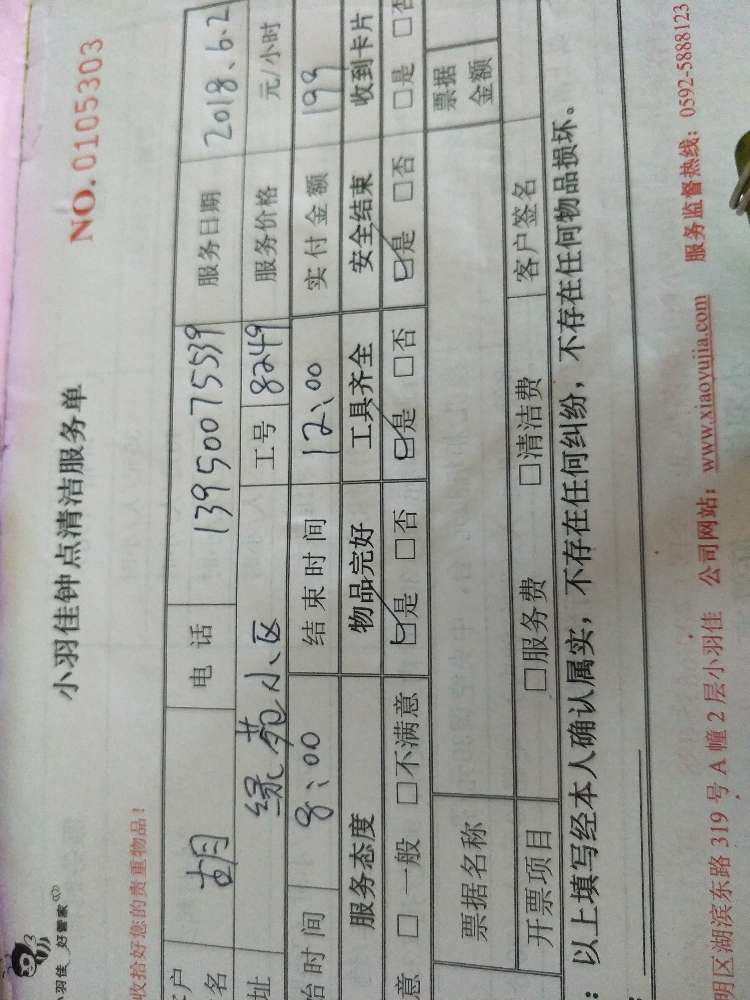 小羽佳 好管家
小羽佳钟点清洁服务单
NO.0105303
收拾好您的贵重物品！
户名 胡 电话 13950075539 服务日期 2018.6.2
址 绿苑小区 工号 8249 服务价格 元/小时
始时间 8:00 结束时间 12:00 实付金额 199
服务态度 物品完好 工具齐全 安全结束 收到卡片
意 □一般 □不满意 ☑是 □否 ☑是 □否 ☑是 □否 □是 □否
票据名称 票据金额
开票项目 □服务费 □清洁费 客户签名
：以上填写经本人确认属实，不存在任何纠纷，不存在任何物品损坏。
明区湖滨东路 319 号 A 幢 2 层小羽佳 公司网站：www.xiaoyujia.com 服务监督热线：0592-5888123